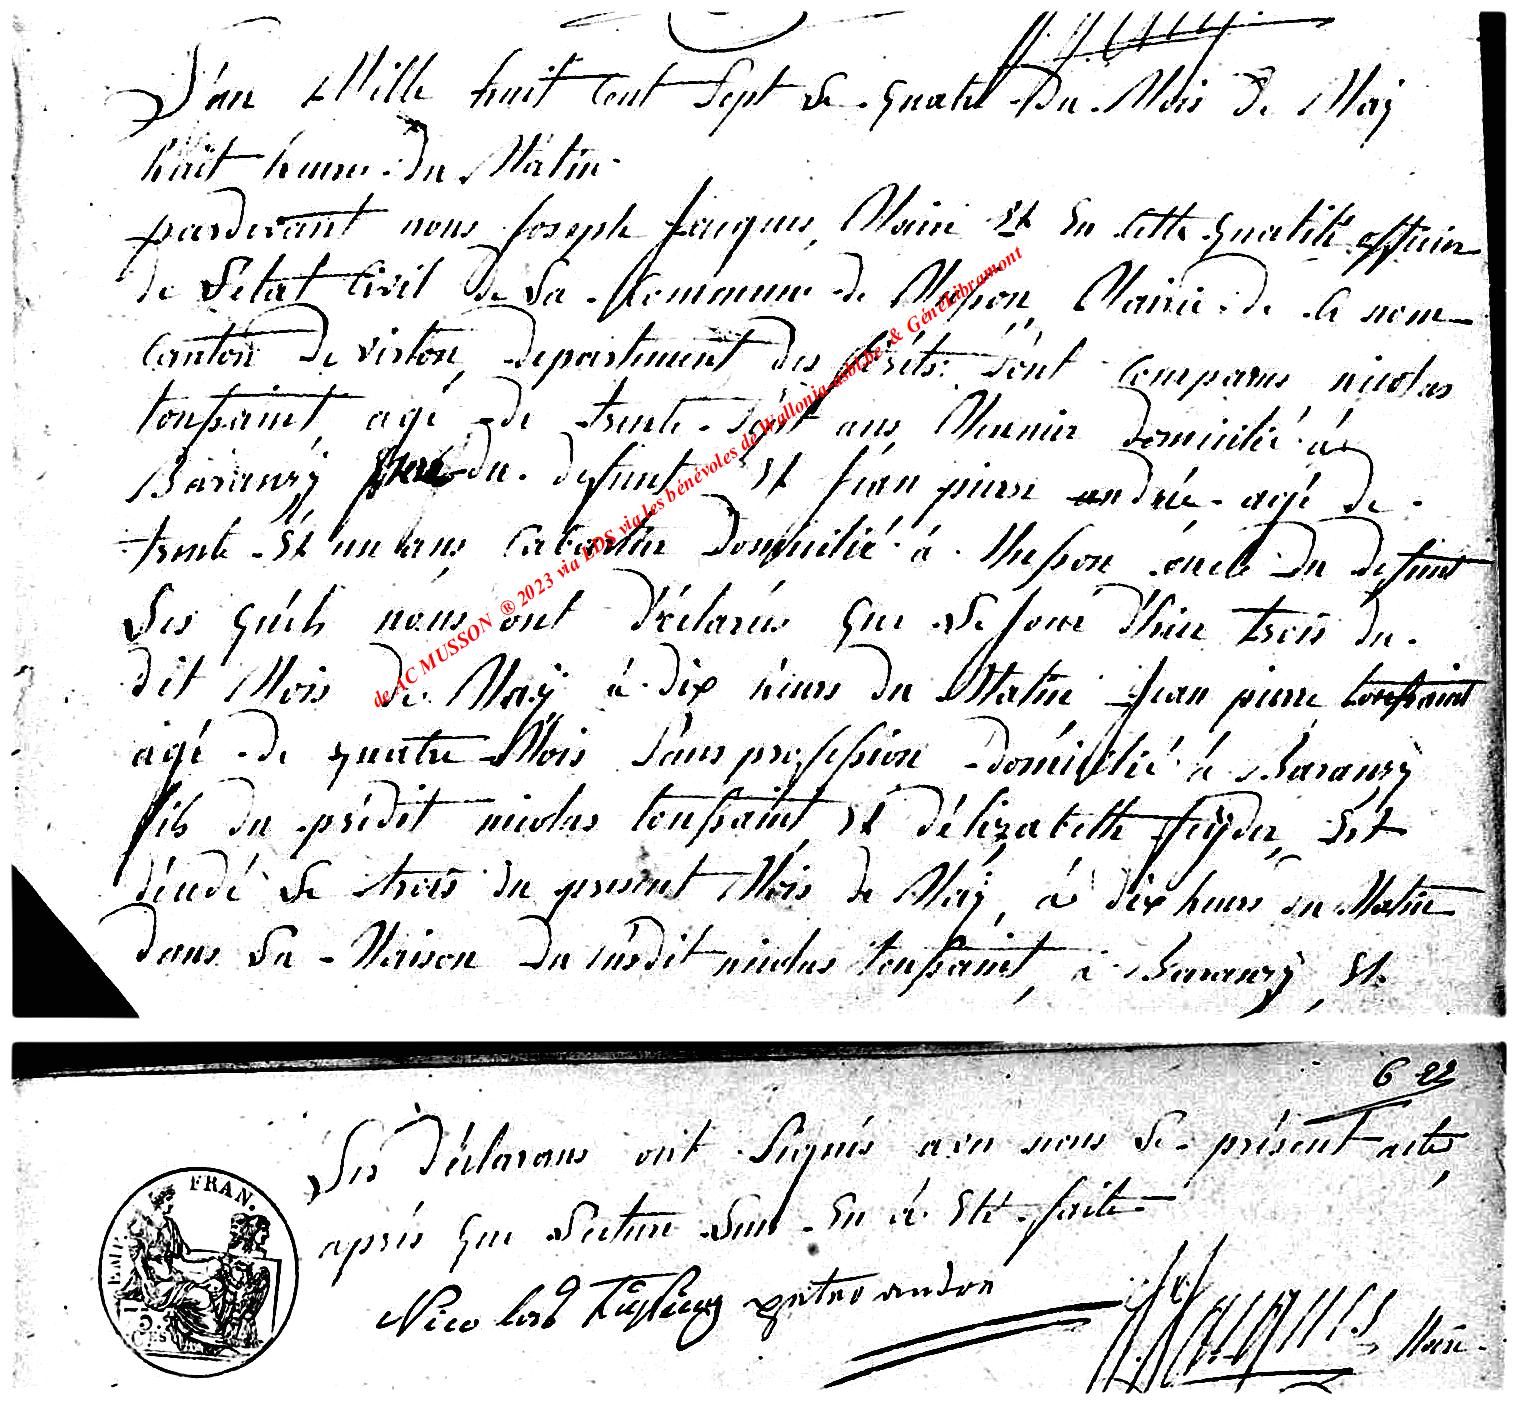 L'an Mille huit Cent Sept Le quatre Du Mois De Maÿ
huit heures Du Matin
pardevant nous Joseph Jacques, Maire Et En Cette qualité officier
de L'etat Civil de La Commune de Musson, Mairie de Ce nom
Canton De virton, departement des forêts: sont Comparus nicolas
toussaint, agé de trente sept ans Meunier domicilié à
Baranzÿ pere du defunt Et Jean pierre andrée agé de
trente Et un ans, Cabartier Domicilié à Musson oncle Du defunt
Les quels nous ont déclarés que Le Jour d'hier trois du
dit Mois De Maÿ à dix heurs du Matin Jean pierre toussaint
agé de quatre Mois sans profession domicilié à Baranzÿ
fils du prédit nicolas toussaint, Et d'élizabeth feÿder, Est
décédé Le trois du present Mois de Maÿ, à dix heurs du Matin
dans La Maison Du susdit nicolas toussaint, à Baranzÿ, Et
de AC MUSSON ® 2023 via LDS via les bénévoles de Wallonia-asbl.be & GénéLibramont
6 22
Les déclarans ont signés avec nous Le présent acte,
après que Lecture Leur En à Eté faite
FRAN.
EMP.
CES
Nicolas peter andre
Jacques Maire